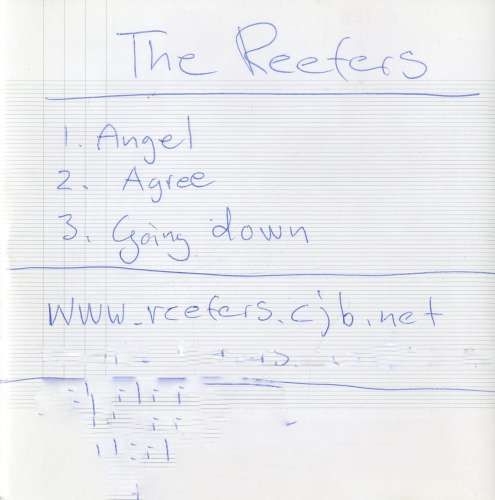 The Reefers
1. Angel
2. Agree
3. Going down
www.reefers.cjb.net